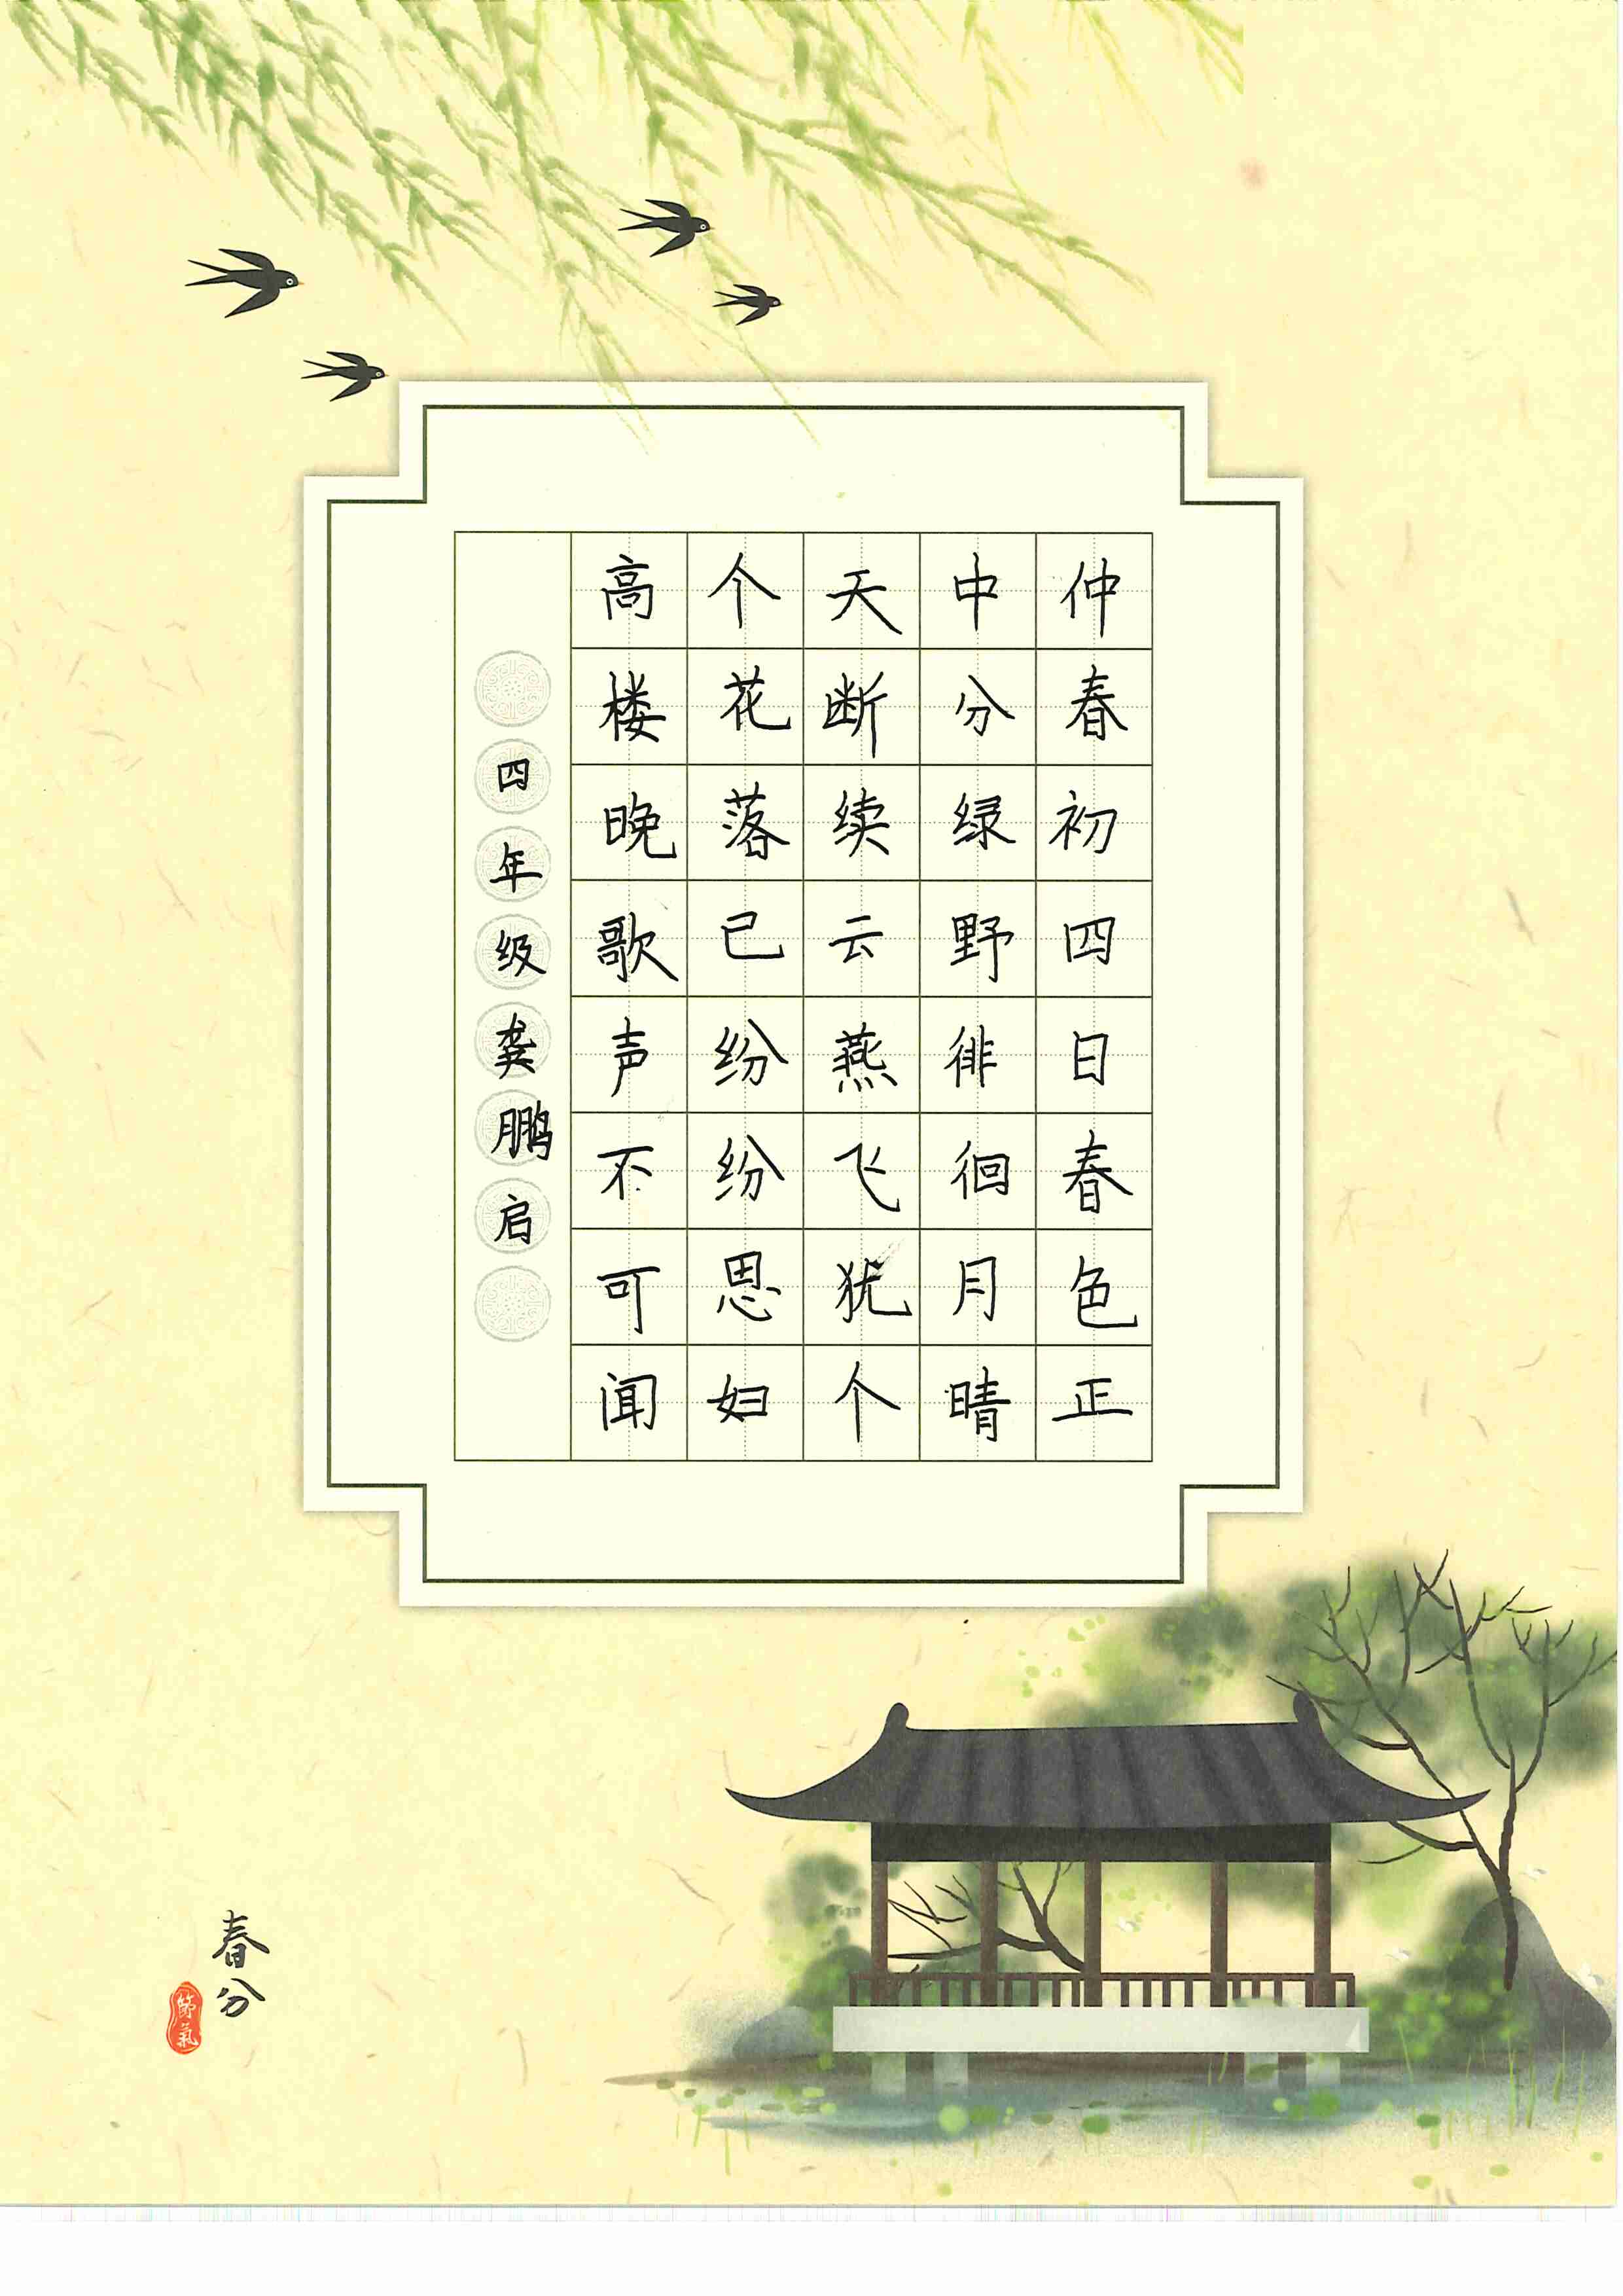 仲春初四日春色正
中分绿野徘徊月晴
天断续云燕飞犹个
个花落已纷纷思妇
高楼晚歌声不可闻
四年级龚鹏启
春分
節氣